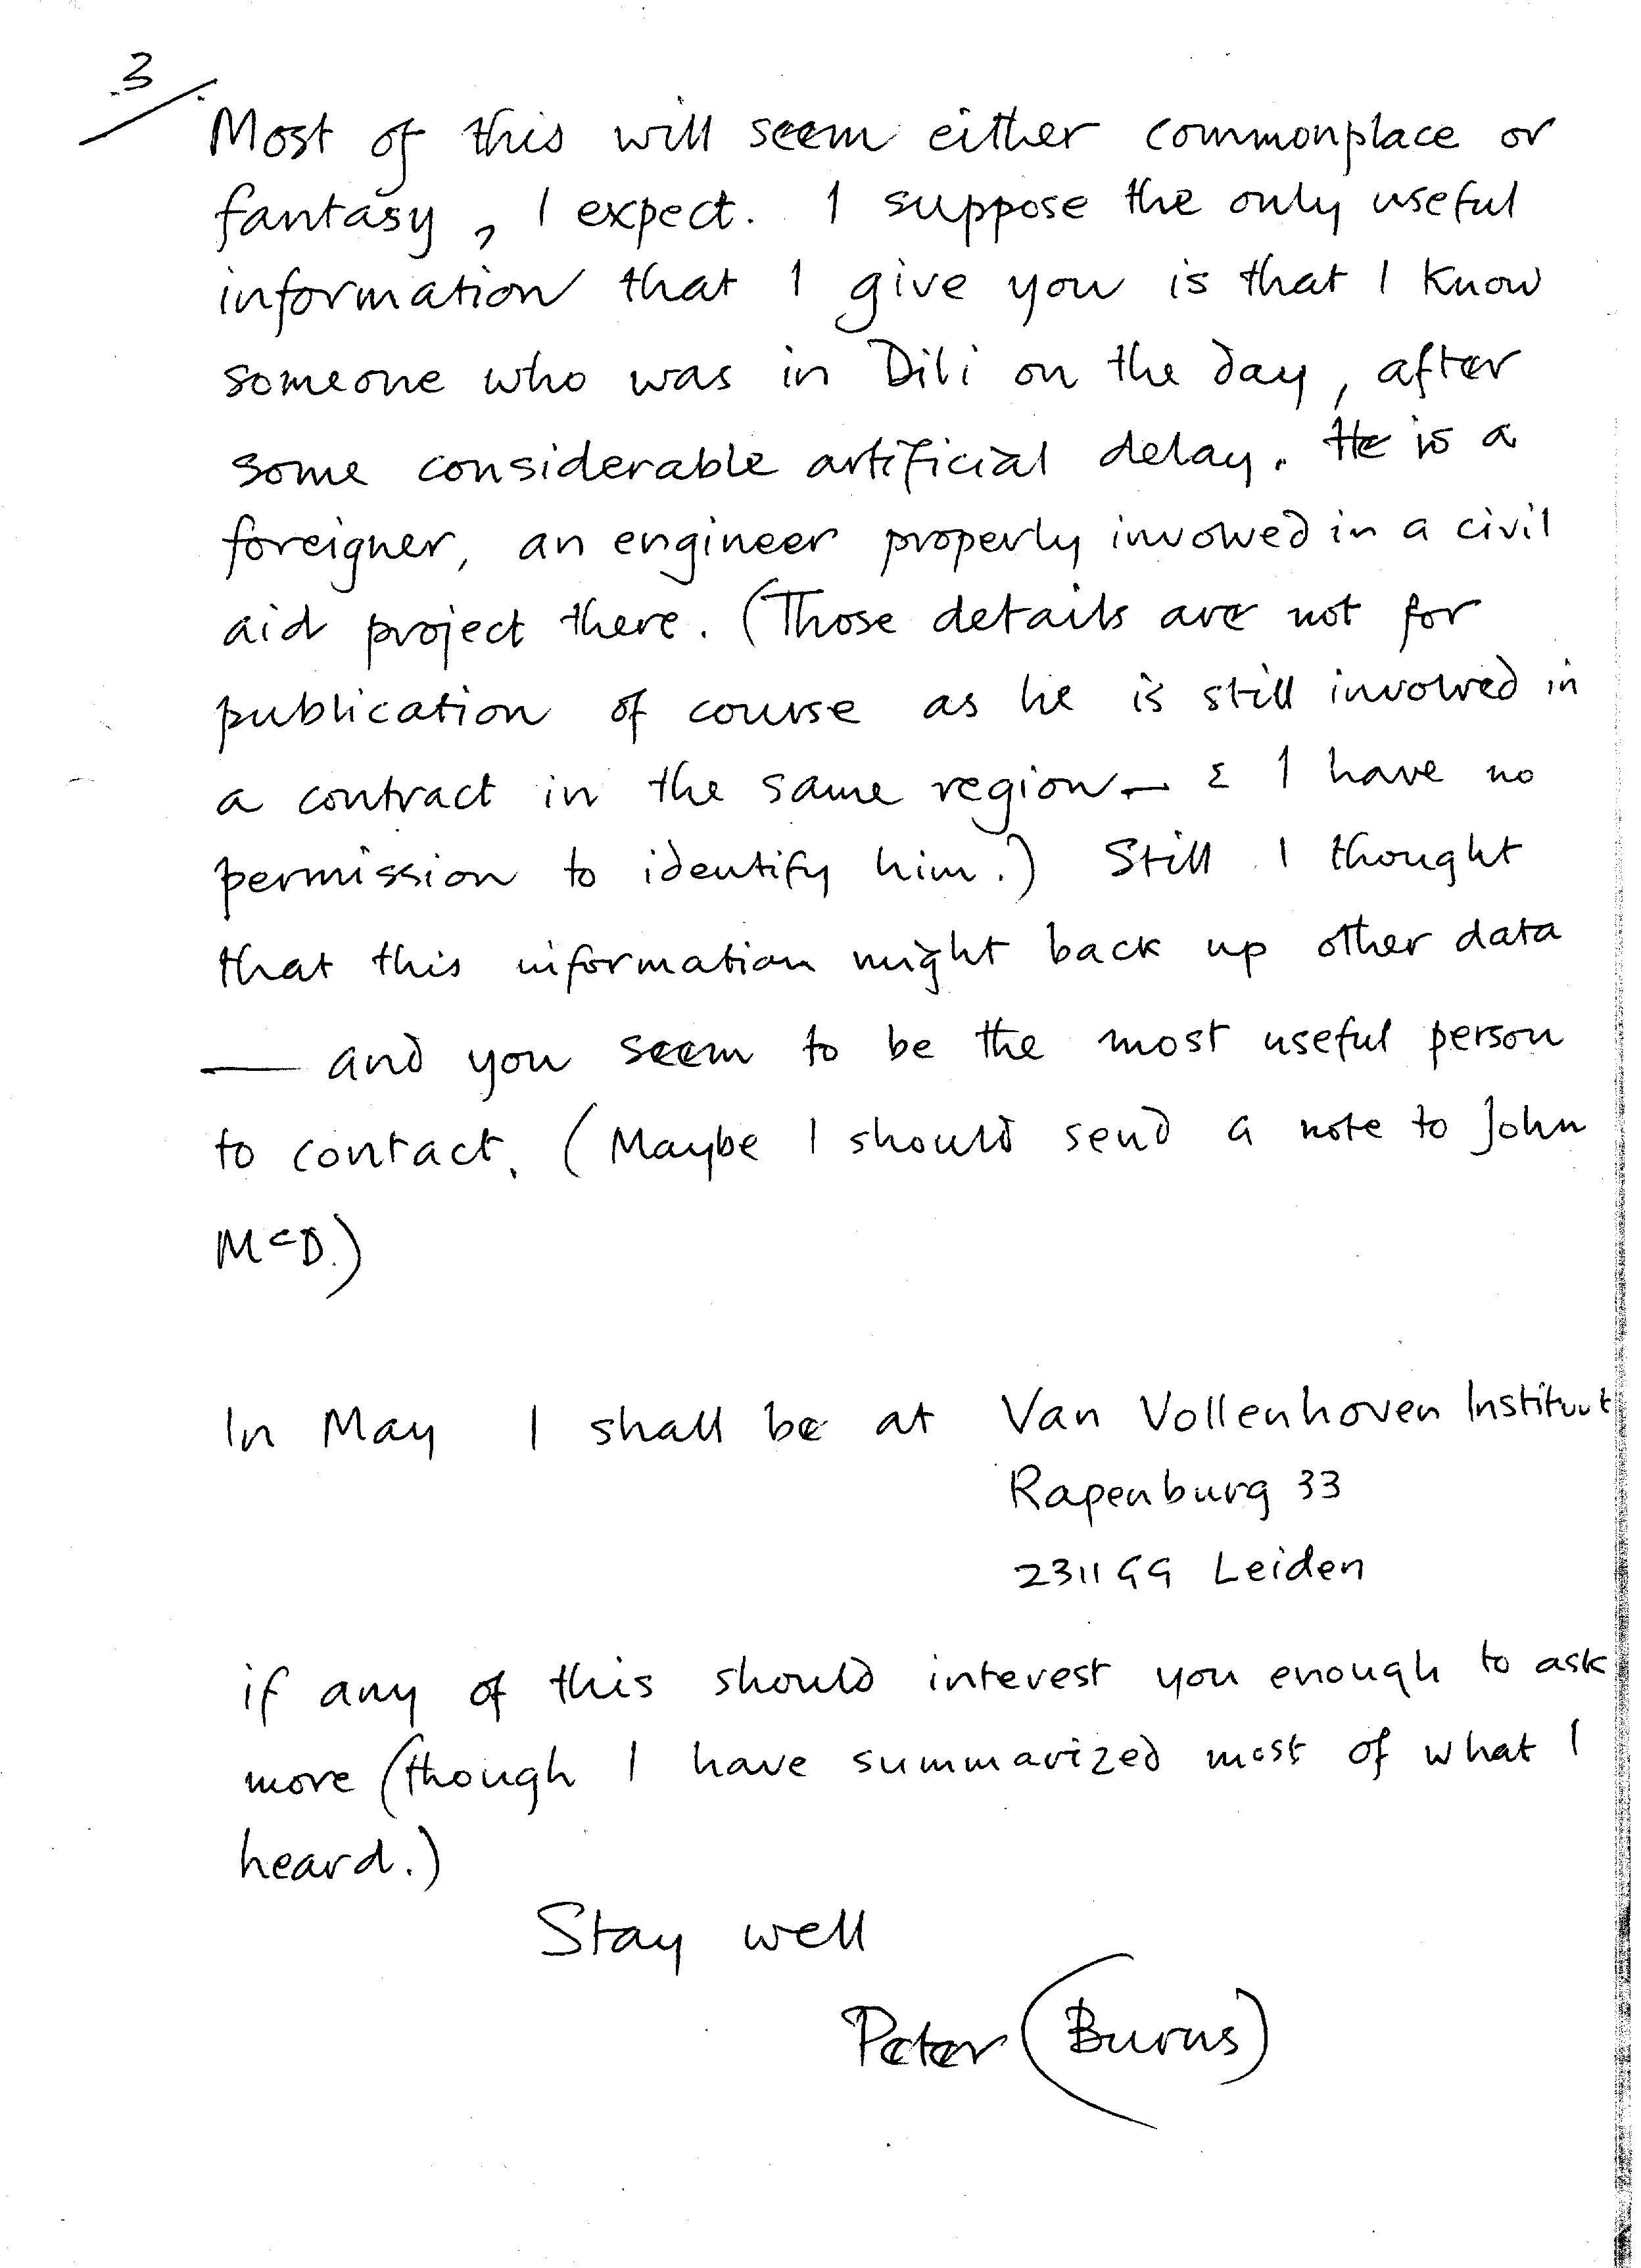 3/
Most of this will seem either commonplace or
fantasy, I expect. I suppose the only useful
information that I give you is that I know
someone who was in Dili on the day, after
some considerable artificial delay. He is a
foreigner, an engineer properly involved in a civil
aid project there. (Those details are not for
publication of course as he is still involved in
a contract in the same region — & I have no
permission to identify him.) Still I thought
that this information might back up other data
— and you seem to be the most useful person
to contact. (Maybe I should send a note to John
McD.)
In May I shall be at Van Vollenhoven Instituut
Rapenburg 33
2311 GG Leiden
if any of this should interest you enough to ask
more (though I have summarized most of what I
heard.)
Stay well
Peter (Burns)